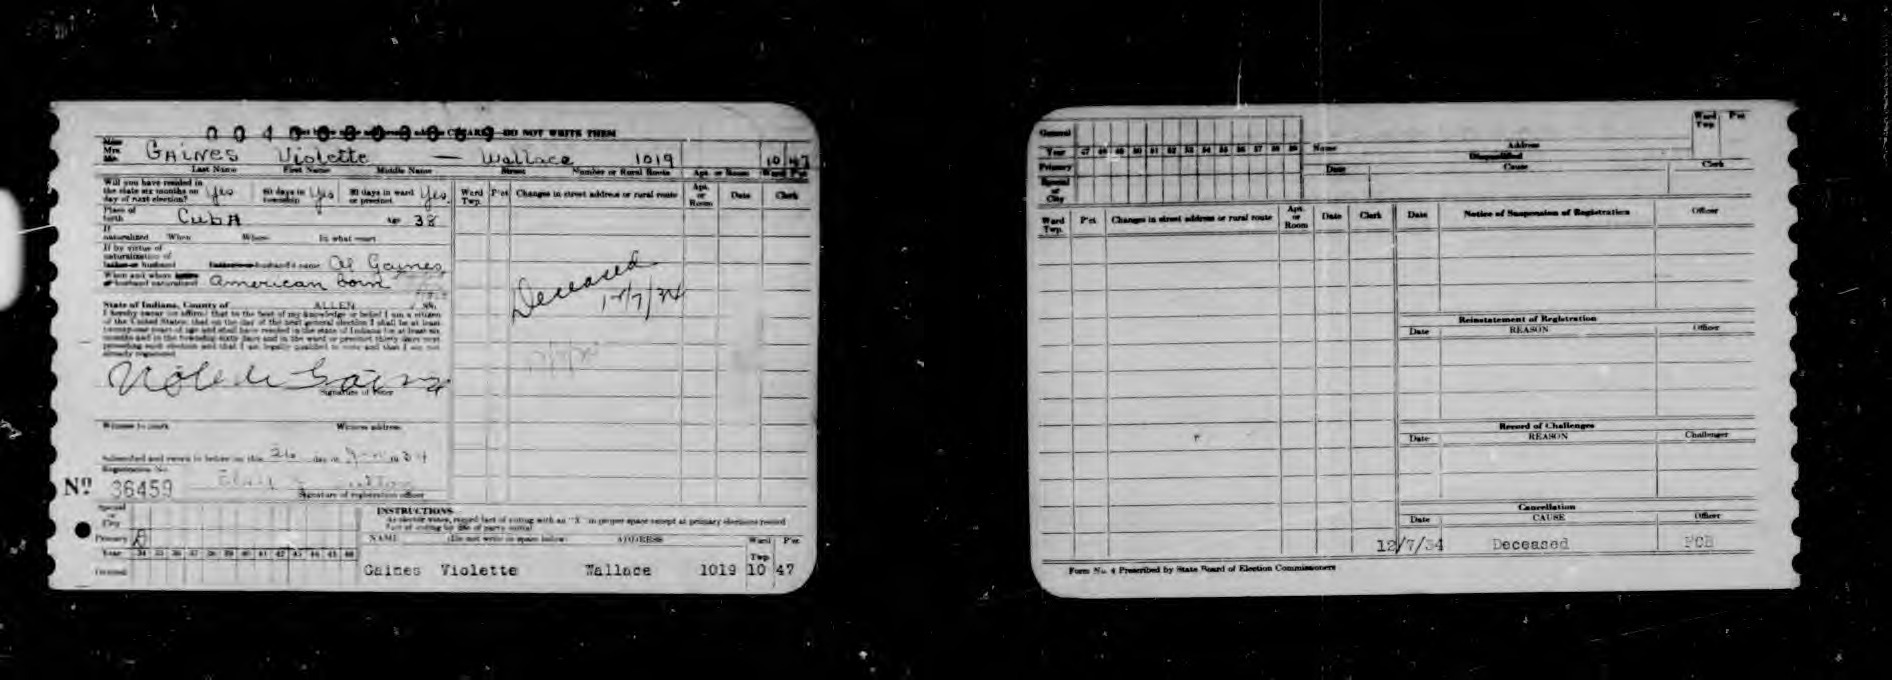 CLEARLY—DO NOT WRITE THEM
Miss
Mrs.
Mr.
GAINES Violette — Wallace 1019 10 47
Last Name First Name Middle Name Street Number or Rural Route Apt. or Room Ward Pct
Will you have resided in the state six months on day of next election? yes 60 days in township yes 30 days in ward or precinct yes.
Ward Twp. P'ct Changes in street address or rural route Apt. or Room Date Clerk
Place of birth CubA 38
If naturalized When Where In what court
If by virtue of naturalization of father or husband husband's name Al Gaines
When and where husband naturalized American born
Deceased
12/7/34
State of Indiana, County of ALLEN ss.
I hereby swear (or affirm) that to the best of my knowledge or belief I am a citizen
of the United States; that on the day of the next general election I shall be at least
twenty-one years of age and shall have resided in the state of Indiana for at least six
months and in the township sixty days and in the ward or precinct thirty days next
preceding such election and that I am legally qualified to vote and that I am not
already registered
Violette Gaines
Signature of Voter
Witness to mark Witness address
Subscribed and sworn to before me this 26 day of 34
Registration No.
Nº 36459
Signature of registration officer
Special or City
Primary R
Year 34 35 36 37 38 39 40 41 42 43 44 45 46
General
INSTRUCTIONS
As elector votes, record fact of voting with an "X" in proper space except at primary elections record
fact of voting by use of party initial
NAME (Do not write in space below) ADDRESS Ward Twp P'ct
Gaines Violette Wallace 1019 10 47
General
Year 47 48 49 50 51 52 53 54 55 56 57 58 59
Primary
Special or City
Ward Twp. Pct
Name Address
Disqualified
Date Cause Clerk
Ward Twp. P'ct Changes in street address or rural route Apt. or Room Date Clerk
Date Notice of Suspension of Registration Officer
Reinstatement of Registration
Date REASON Officer
Record of Challenges
Date REASON Challenger
Cancellation
Date CAUSE Officer
12/7/34 Deceased FCB
Form No. 4 Prescribed by State Board of Election Commissioners